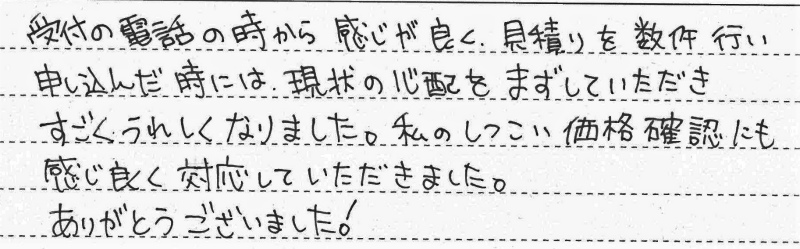 受付の電話の時から感じが良く、見積りを数件行い
申し込んだ時には、現状の心配をまずしていただき
すごくうれしくなりました。私のしつこい価格確認にも
感じ良く対応していただきました。
ありがとうございました!